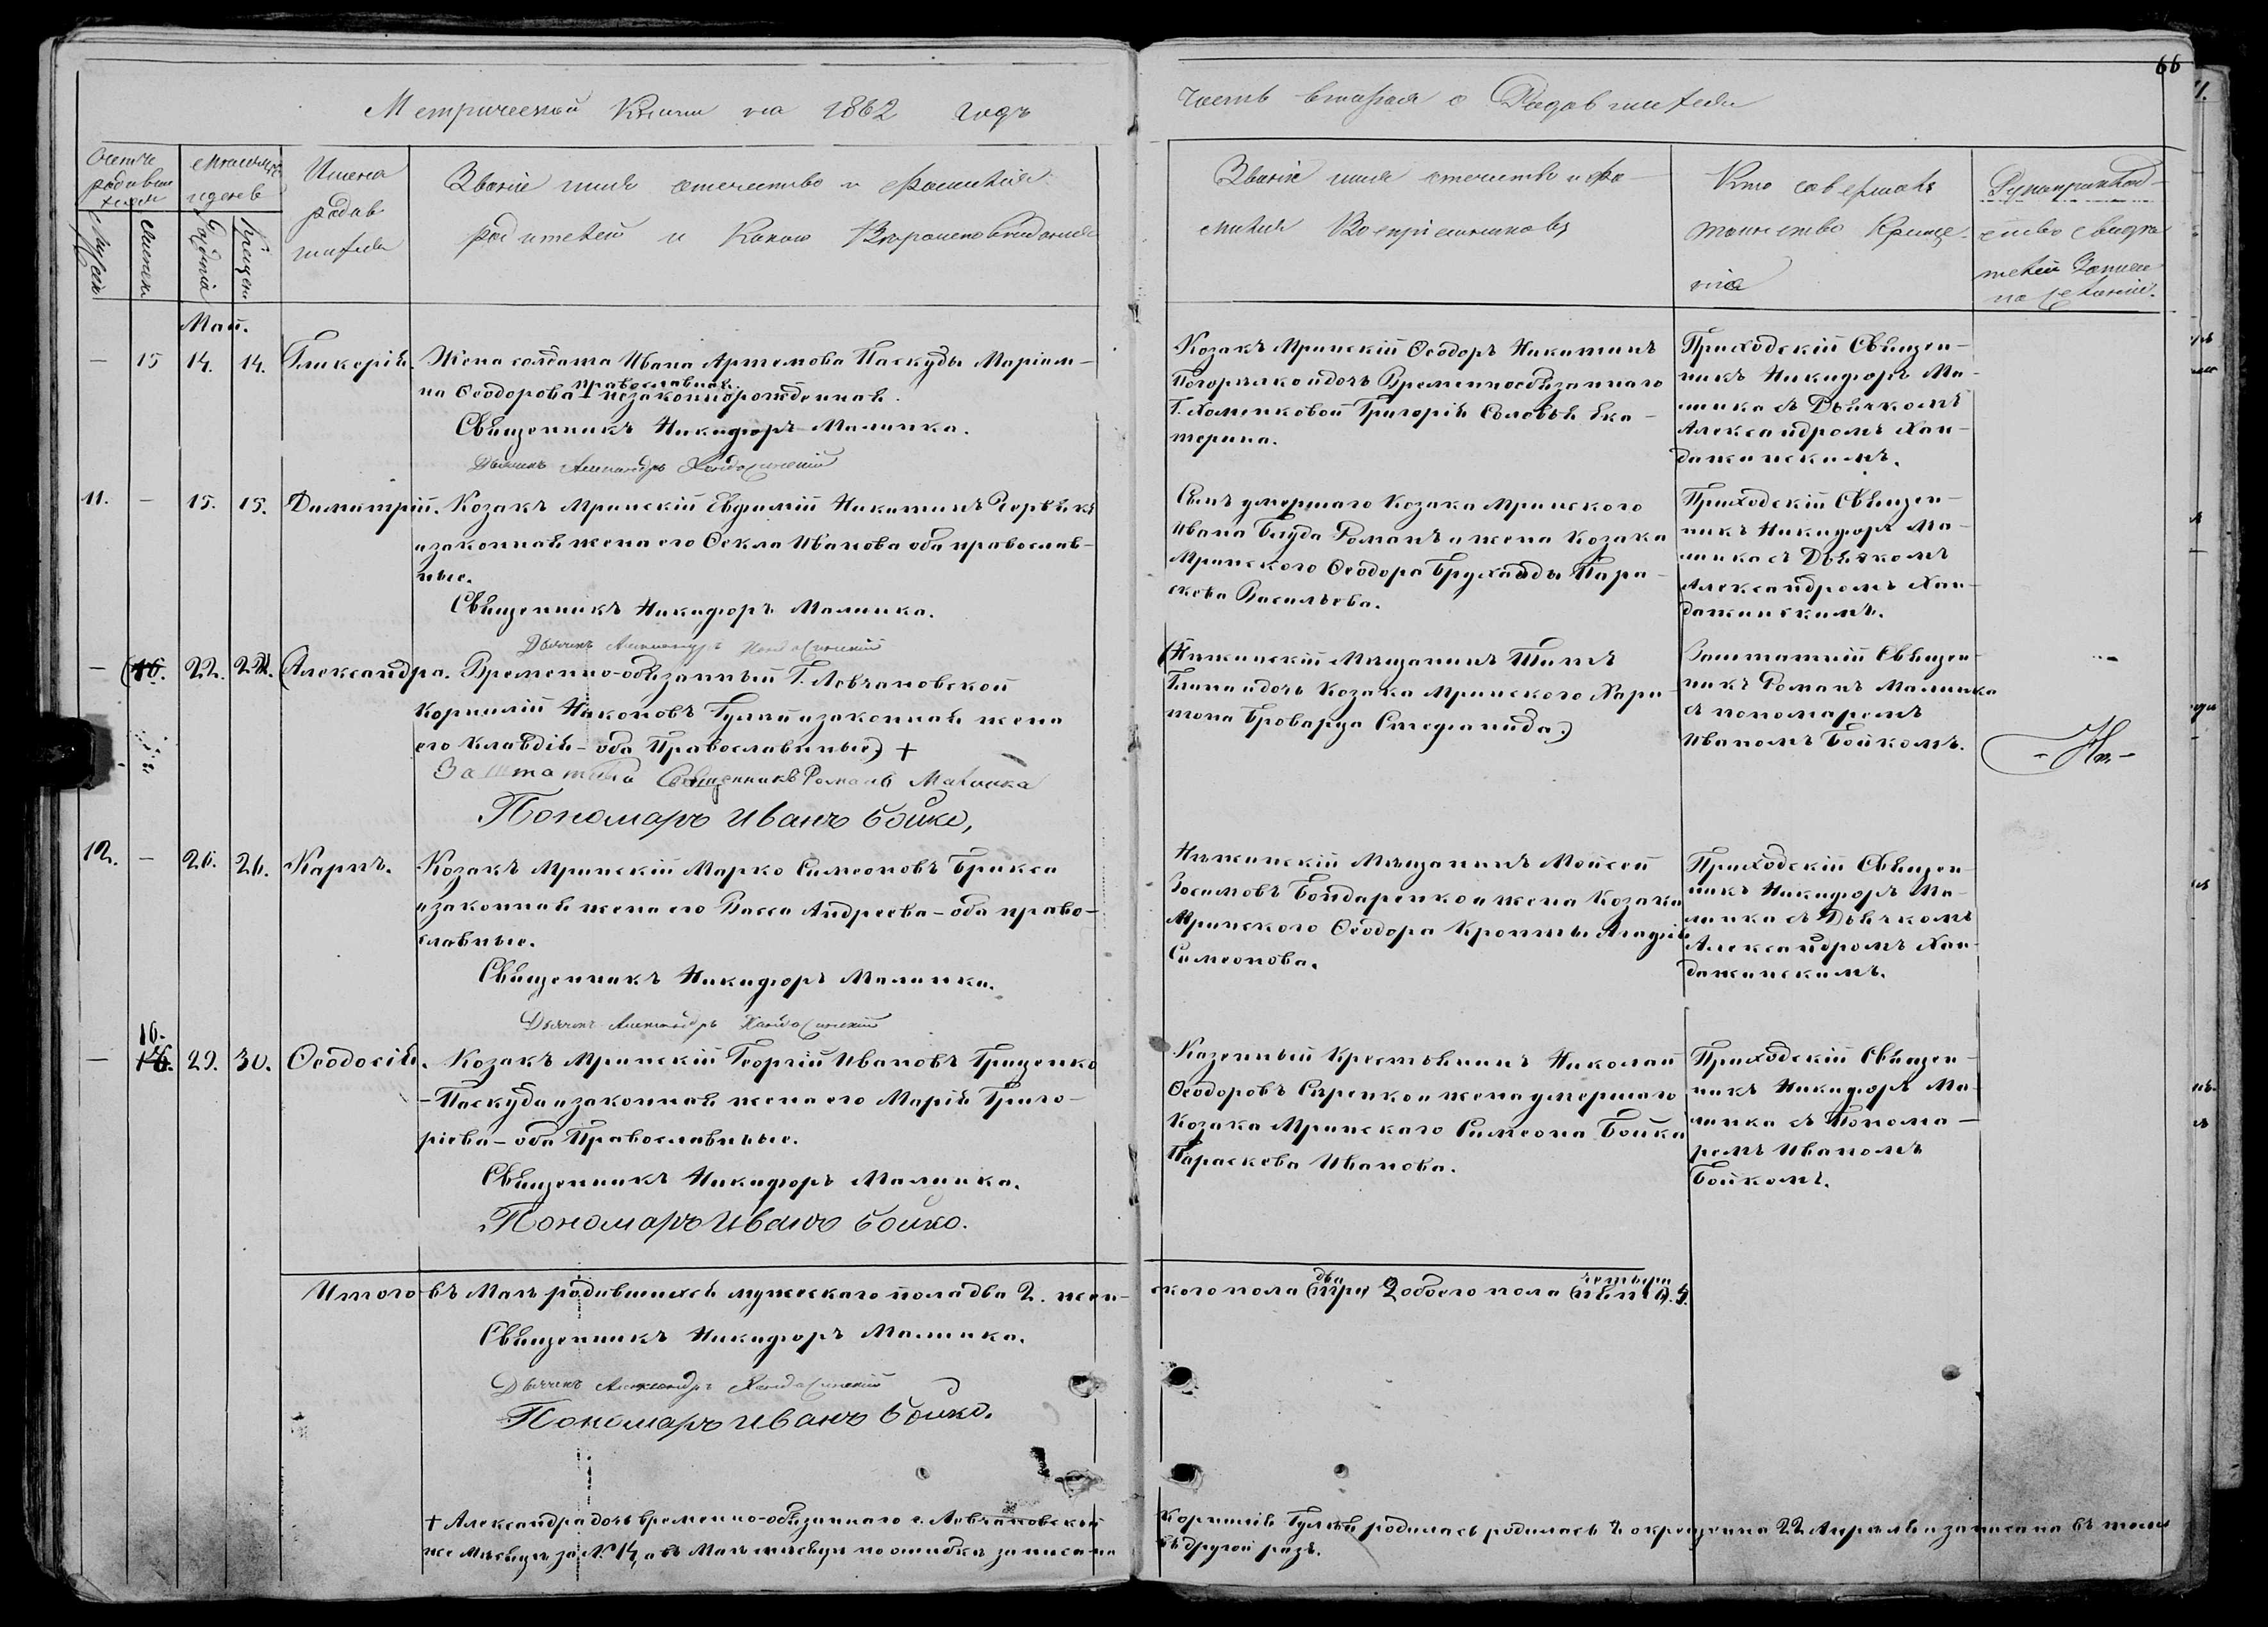 66
Метрической Книги на 1862 годъ
часть вторая о Родавшихся
Счетъ родившихся
Мужеск
Женск
Мѣсяцъ и день
Рожденія
Крещен
Имена
родив
шихся
Званіе имя отечество и фамилія
родителей и Какого Вѣроисповеданія
Званіе имя отечество и фа
милія Воспріемниковъ
Кто совершалъ
таинство Креще
нія
Рукоприклад
ство свидѣ
телей Записи
по желанію.
Май.
— 15 14. 14. Гликерія. Жена солдата Ивана Артемова Паскуды Маріам–
на Ѳеодорова православная незаконнорожденная.
Священникъ Никифоръ Малинка.
Дьячекъ Александръ Хандажинскій
Козакъ Мринскій Ѳеодоръ Никитинъ
Погорѣлко и дочь Временнообязаннаго
Г. Хоменковой Григорія Соловья Ека–
терина.
Приходскій Священ–
никъ Никифоръ Ма–
линка съ Дьячкомъ
Александромъ Хан–
дажинскимъ.
11. — 15. 15. Димитрій. Козакъ Мринскій Евфимій Никитинъ Червякъ
и законная жена его Ѳекла Иванова оба православ–
ные.
Священникъ Никифоръ Малинка.
Дьячекъ Александръ Хандажинскій
Сынъ умершаго Козака Мринского
Ивана Блуда Романъ и жена Козака
Мринского Ѳеодора Бруханды Пара–
скева Васильева.
Приходскій Священ–
никъ Никифоръ Ма–
линка съ Дьячкомъ
Александромъ Хан–
дажинскимъ.
— (16. 22. 22. (Александра. Временно-обязанный Г. Левчановской
Корнилій Никоновъ Гуляй и законная жена
его Клавдія – оба Православные) +
Заштатный Священникъ Романъ Малинка
Пономарь Иванъ Бойко,
(Нѣжинскій Мѣщанинъ Титъ
Глина и дочь Козака Мринского Хари–
тона Броварца Стефанида.)
Заштатній Священ–
никъ Романъ Малинка
съ пономаремъ
Иваномъ Бойкомъ.
12. — 26. 26. Карпъ. Козакъ Мринскій Марко Симеоновъ Брикса
и законная жена его Васса Андреева – оба право–
славные.
Священникъ Никифоръ Малинка.
Дьячекъ Александръ Хандажинскій
Нѣжинскій Мѣщанинъ Моисей
Зосимовъ Бондаренко и жена Козака
Мринского Ѳеодора Кропты Агафія
Симеонова.
Приходскій Священ–
никъ Никифоръ Ма–
линка съ Дьячкомъ
Александромъ Хан–
дажинскимъ.
— 16. 29. 30. Ѳеодосія. Козакъ Мринскій Георгій Ивановъ Гриценко
– Паскуда и законная жена его Марія Григо–
ріева – оба Православные.
Священникъ Никифоръ Малинка.
Пономарь Иванъ Бойко.
Казенный Крестьянинъ Николай
Ѳеодоровъ Сѣренко и жена умершаго
Козака Мринскаго Симеона Бойка
Параскева Иванова.
Приходскій Священ–
никъ Никифоръ Ма–
линка съ Понома–
ремъ Иваномъ
Бойкомъ.
Итого въ Маѣ родившихся мужескаго пола два 2. жен–
ского пола (три) два 2 обоего пола (пять) четыри. 4.
Священникъ Никифоръ Малинка.
Дьячекъ Александръ Хандажинскій
Пономарь Иванъ Бойко.
+ Александра дочь временно-обязаннаго г. Левчановской
Корнилія Гуляя родилась родилась и окрещенна 22 Апрѣля и записана въ томъ
же Мѣсяцѣ за № 14, а въ Маѣ мѣсяцѣ по ошибкѣ записана
въ другой разъ.